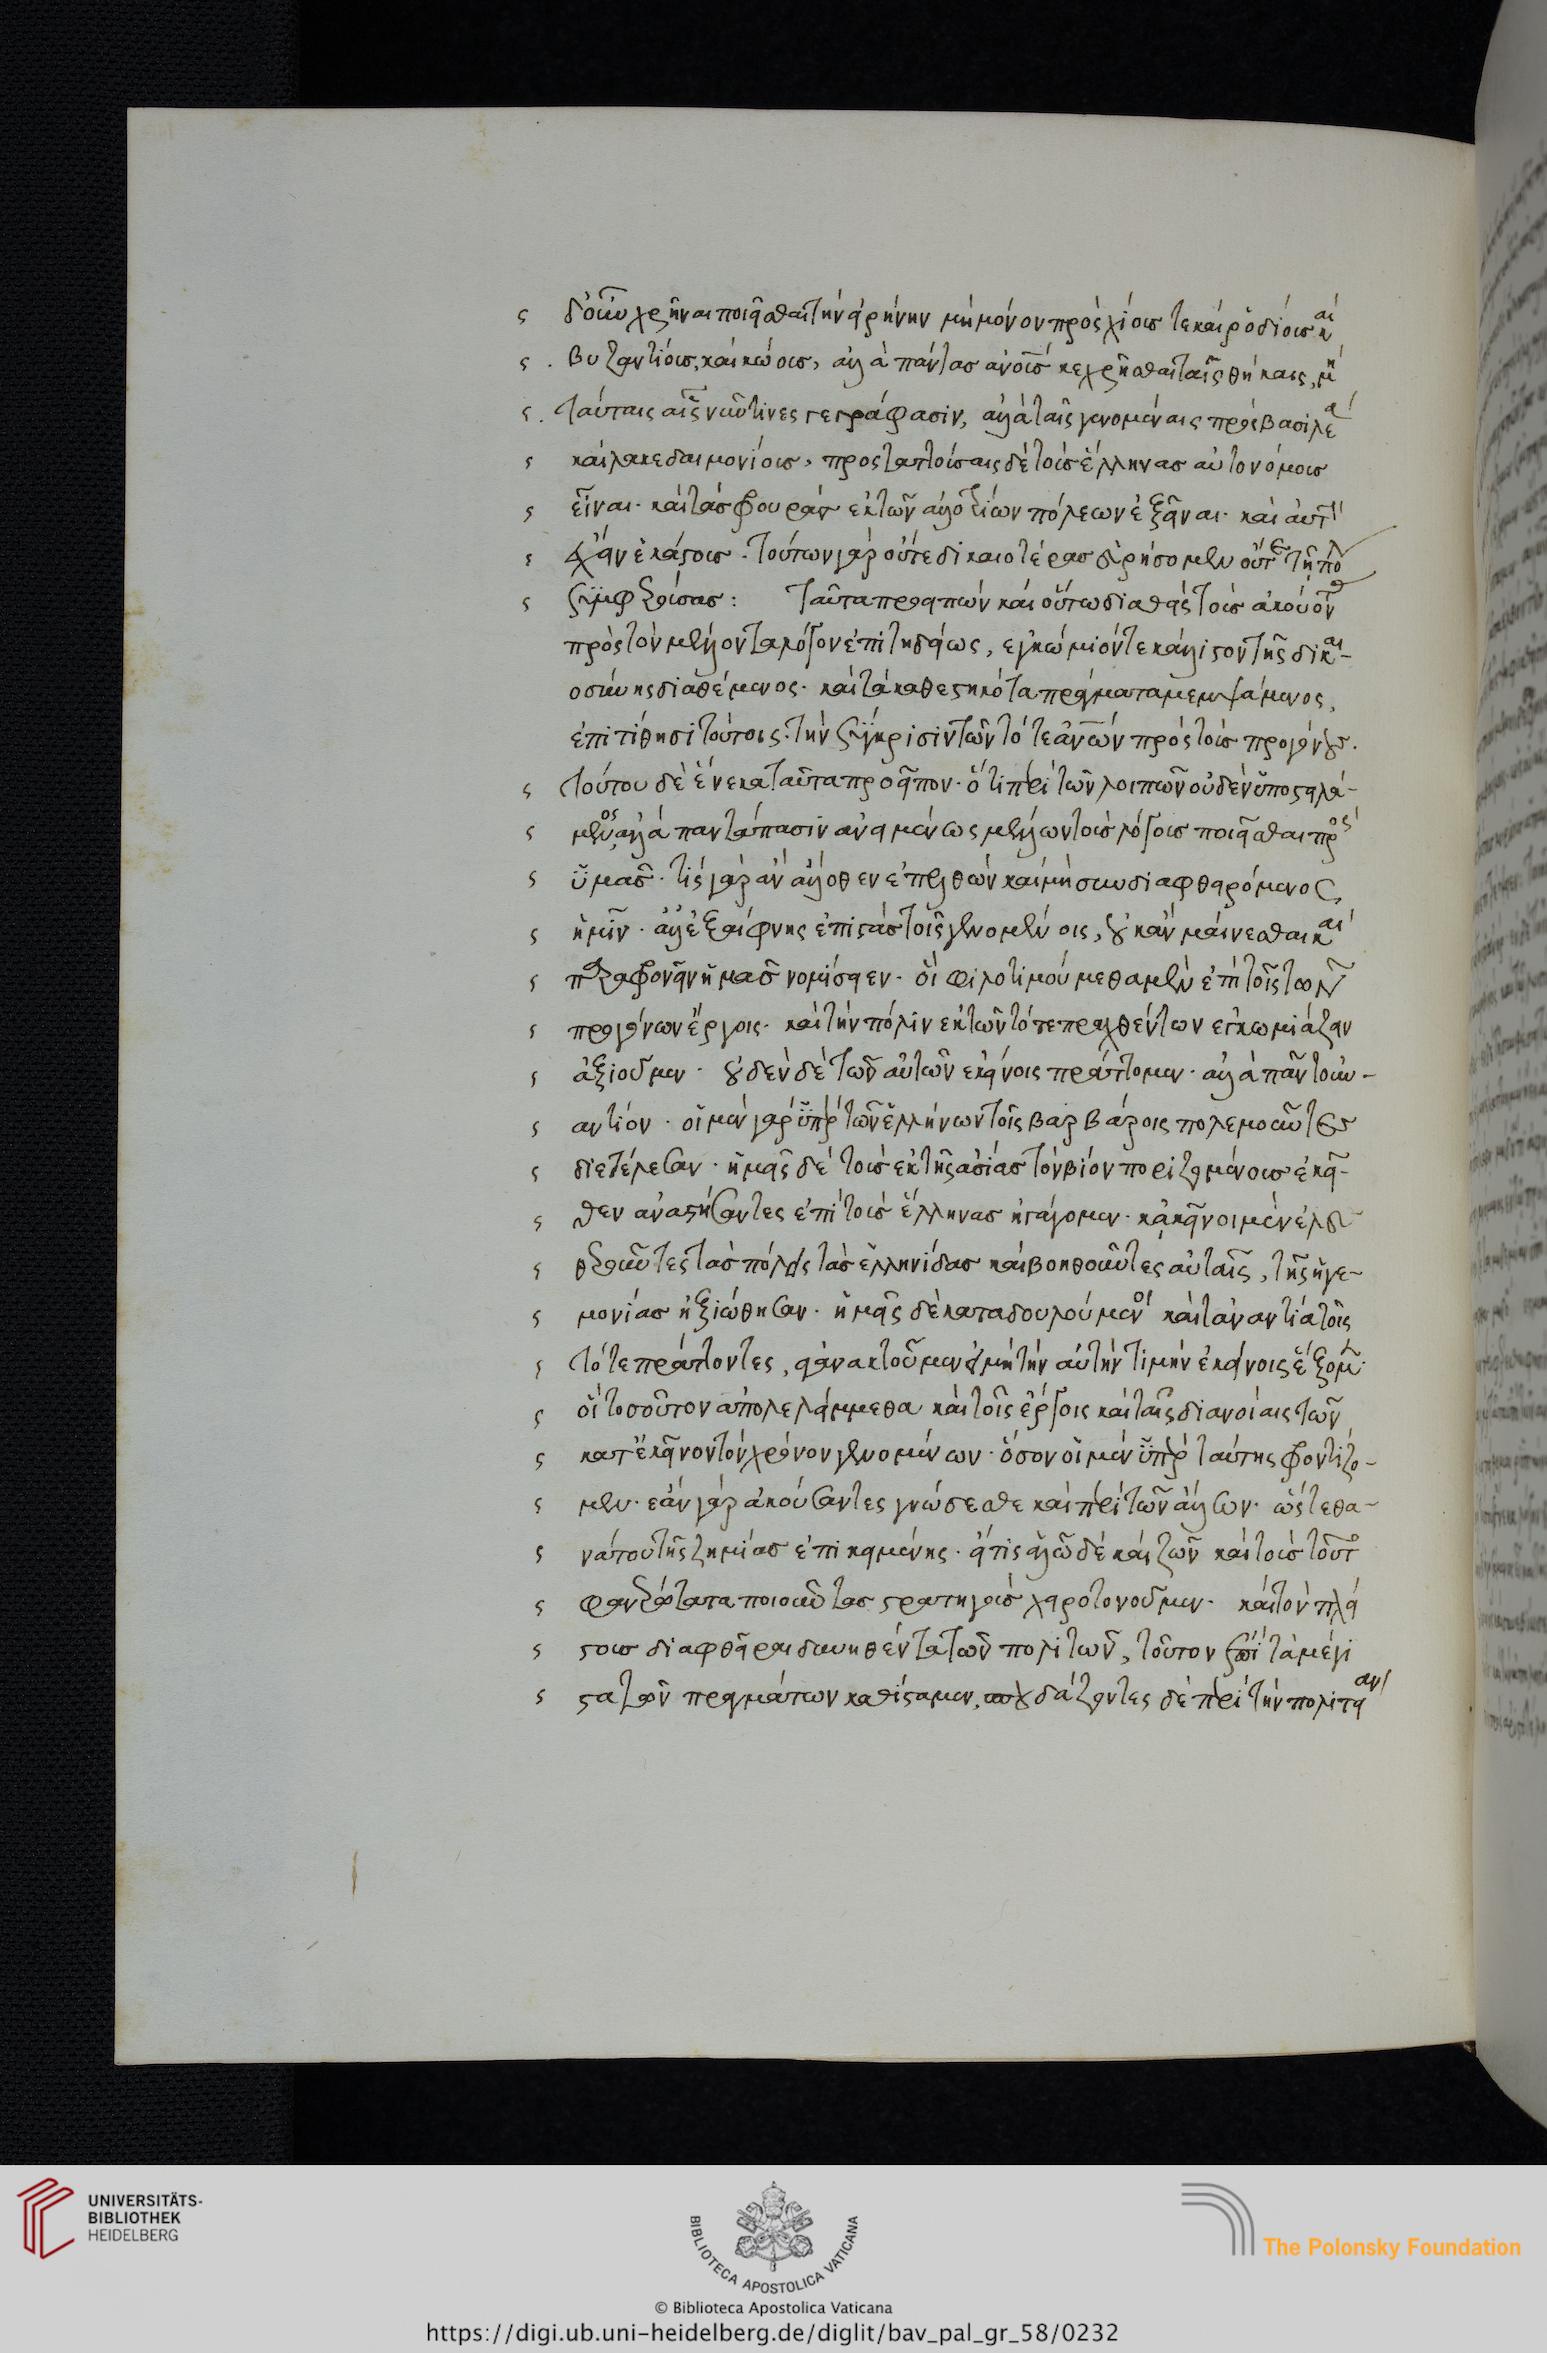 δ' οὖν χρῆναι ποιεῖσθαι τὴν εἰρήνην μὴ μόνον πρὸς χίους τὲ καὶ ῥοδίους καὶ
βυζαντίους, καὶ κώους, ἀλλὰ πάντας ἀνους κεχρῆσθαι ταῖς θήκαις, μὴ
ταύταις αἷς νῦν τινες γεγράφασιν, ἀλλὰ ταῖς γενομέναις πρὸς βασιλέα
καὶ λακεδαιμονίους, προσταττούσαις δὲ τοὺς ἕλληνας αὐτονόμους
εἶναι· καὶ τὰς φρουρὰς ἐκ τῶν ἀλλοτρίων πόλεων ἐξιέναι· καὶ αὐτ
ἔχειν ἑκάστους· τούτων γὰρ οὔτε δικαιοτέρας εὑρήσομεν οὔτε τῇ πό
συμφερούσας: ταῦτα προειπὼν καὶ οὕτω διαθεὶς τοὺς ἀκούοντ
πρὸς τὸν μέλλοντα λόγον ἐπιτηδείως, ἐγκώμιόν τε κάλλιστον τῆς δικαι-
οσύνης διαθέμενος· καὶ τὰ καθεστηκότα πράγματα μεμψάμενος,
ἐπιτίθησι τούτοις· τὴν σύγκρισιν τῶν τότε ἀνων πρὸς τοὺς προγόνους·
τούτου δὲ ἕνεκα ταῦτα προεῖπον· ὅτι περὶ τῶν λοιπῶν οὐδὲν ὑποστειλά-
μενος, ἀλλὰ παντάπασιν ἀνειμένως μέλλων τοὺς λόγους ποιεῖσθαι πρὸς
ὑμᾶς· τίς γὰρ ἂν ἄλλοθεν ἐπελθὼν καὶ μὴ συνδιαφθαρόμενος
ἡμῖν· ἀλλ' ἐξαίφνης ἐπιστὰς τοῖς γενομένοις, οὐκ ἂν μαίνεσθαι καὶ
παραφρονεῖν ἡμᾶς νομίσειεν· οἳ φιλοτιμούμεθα μὲν ἐπὶ τοῖς τῶν
προγόνων ἔργοις· καὶ τὴν πόλιν ἐκ τῶν τότε πραχθέντων ἐγκωμιάζειν
ἀξιοῦμεν· οὐδὲν δὲ τῶν αὐτῶν ἐκείνοις πράττομεν· ἀλλὰ πᾶν τοὐν-
αντίον· οἱ μὲν γὰρ ὑπὲρ τῶν ἑλλήνων τοῖς βαρβάροις πολεμοῦντες
διετέλεσαν· ἡμεῖς δὲ τοὺς ἐκ τῆς ἀσίας τὸν βίον ποριζομένους ἐκεῖ-
θεν ἀναστήσαντες ἐπὶ τοὺς ἕλληνας ἠγάγομεν· κἀκεῖνοι μὲν ἐλευ
θεροῦντες τὰς πόλεις τὰς ἑλληνίδας καὶ βοηθοῦντες αὐταῖς, τῆς ἡγε-
μονίας ἠξιώθησαν· ἡμεῖς δὲ καταδουλούμενοι καὶ τἀναντία τοῖς
τότε πράττοντες, ἀγανακτοῦμεν εἰ μὴ τὴν αὐτὴν τιμὴν ἐκείνοις ἕξομεν·
οἳ τοσοῦτον ἀπολελείμμεθα καὶ τοῖς ἔργοις καὶ ταῖς διανοίαις τῶν
κατ' ἐκεῖνον τὸν χρόνον γενομένων· ὅσον οἱ μὲν ὑπὲρ ταύτης φροντίζο-
μεν· ἐὰν γὰρ ἀκούσαντες γνώσεσθε καὶ περὶ τῶν ἄλλων· ὥστε θα-
νάτου τῆς ζημίας ἐπικειμένης· εἴ τις ἁλῷ δεκάζων καὶ τοὺς τοῦτο
φανερώτατα ποιοῦντας στρατηγοὺς χειροτονοῦμεν· καὶ τὸν πλεί
στους διαφθεῖραι δυνηθέντα τῶν πολιτῶν, τοῦτον ἐπὶ τὰ μέγι
στα τῶν πραγμάτων καθίσταμεν, σπουδάζοντες δὲ περὶ τὴν πολιτείαν
UNIVERSITÄTS-
BIBLIOTHEK
HEIDELBERG
BIBLIOTECA APOSTOLICA VATICANA
The Polonsky Foundation
© Biblioteca Apostolica Vaticana
https://digi.ub.uni-heidelberg.de/diglit/bav_pal_gr_58/0232